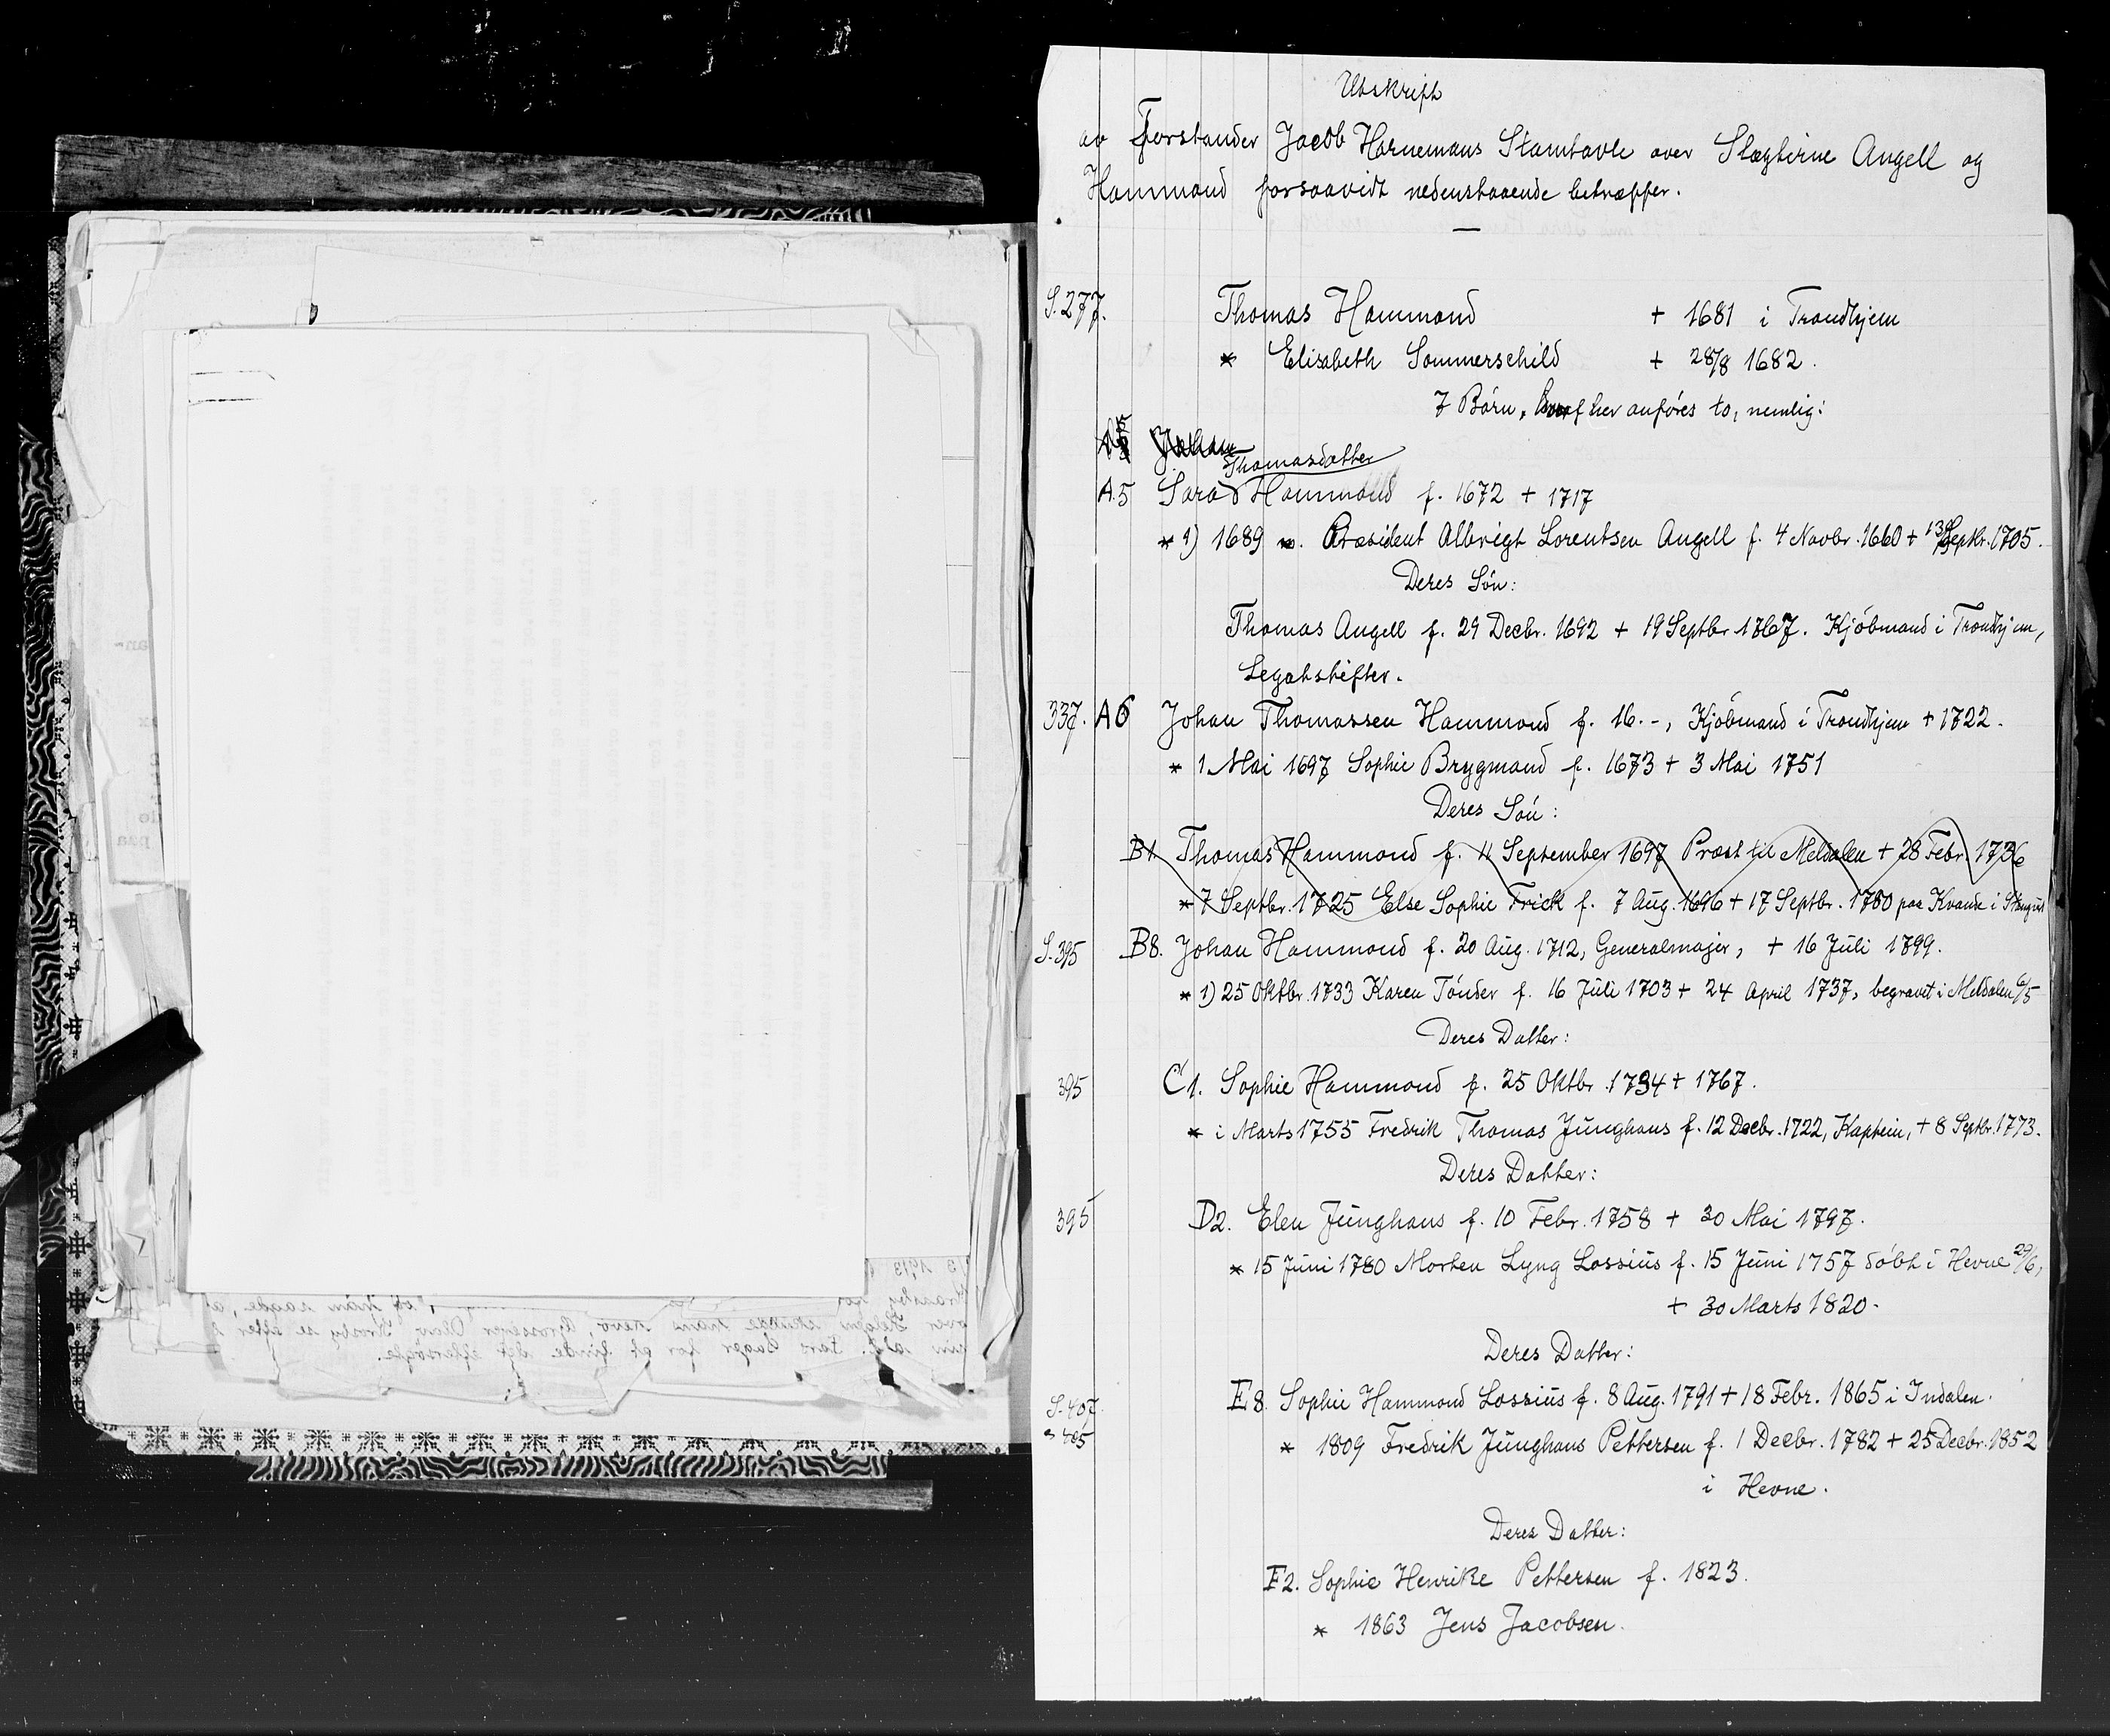 Utskrift
av Forstander Jacob Hornemans Stamtavle over Slægterne Angell og
Hammond forsaavidt nedenstaaende betræffer.
—
S. 277. Thomas Hammond + 1681 i Trondhjem
* Elisabeth Sommerschild + 28/8 1682.
7 Børn, hvoraf her anføres to, nemlig:
Johan
Thomasdatter
A.5 Sara Hammond f. 1672 + 1717
* 1) 1689 m. Præsident Albrigt Lorentsen Angell f. 4 Novbr. 1660 + 13 Septbr. 1705.
Deres Søn:
Thomas Angell f. 29 Decbr. 1692 + 19 Septbr 1767. Kjøbmand i Trondhjem,
Legatstifter.
337. A6 Johan Thomassen Hammond f. 16.-, Kjøbmand i Trondhjem + 1722.
* 1 Mai 1697 Sophie Brygmand f. 1673 + 3 Mai 1751
Deres Søn:
B1. Thomas Hammond f. 11 September 1697 Præst til Meldalen + 28 Febr. 1736
* 7 Septbr. 1725 Else Sophie Frick f. 7 Aug. 1696 + 17 Septbr. 1780 paa Kvande i
S. 395 B8. Johan Hammond f. 20 Aug. 1712, Generalmajor, + 16 Juli 1799.
* 1) 25 Oktbr. 1733 Karen Tønder f. 16 Juli 1703 + 24 April 1737, begravet i Meldalen 6/5
Deres Datter:
395 C1. Sophie Hammond f. 25 Oktbr. 1734 + 1767.
* i Marts 1755 Fredrik Thomas Junghans f. 12 Decbr. 1722, Kaptein, + 8 Septbr. 1773.
Deres Datter:
395 D2. Elen Junghans f. 10 Febr. 1758 + 30 Mai 1797.
* 15 Juni 1780 Morten Lyng Lossius f. 15 Juni 1757 døbt i Hevne 29/6,
+ 30 Marts 1820.
Deres Datter:
S. 407. E8. Sophie Hammond Lossius f. 8 Aug. 1791 + 18 Febr. 1865 i Indalen.
* 1809 Fredrik Junghans Pettersen f. 1 Decbr. 1782 + 25 Decbr. 1852
i Hevne.
Deres Datter:
F2. Sophie Henrike Pettersen f. 1823.
* 1863 Jens Jacobsen.